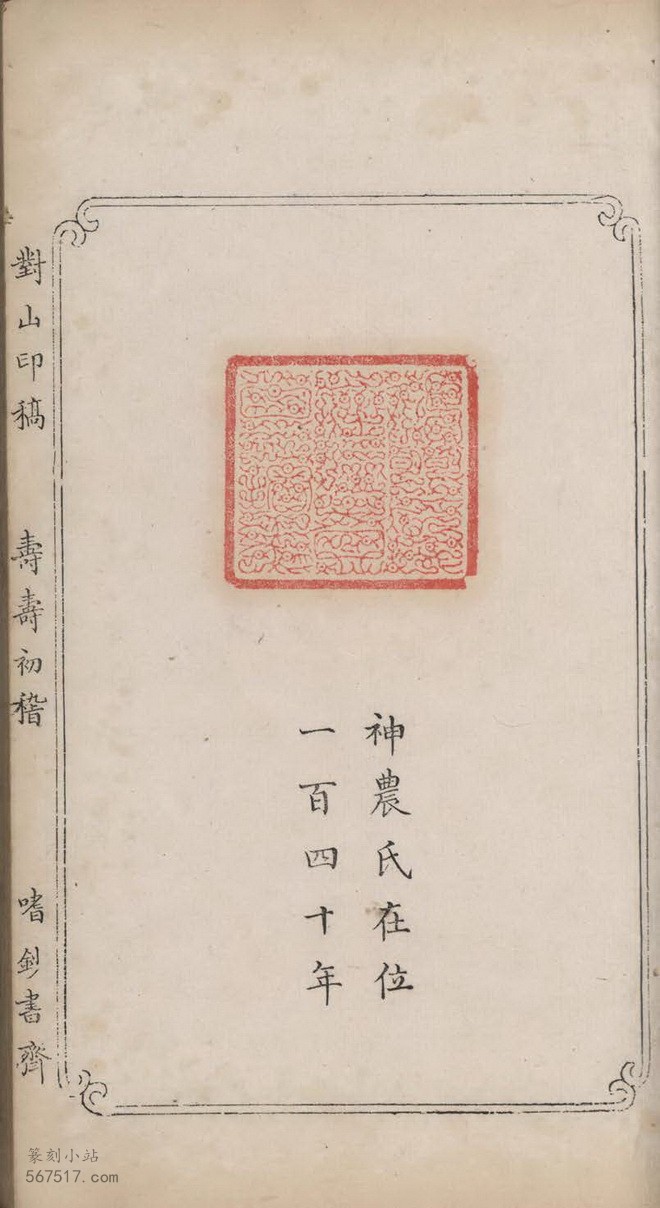 神農氏在位
一百四十年
對山印稿
壽壽初稽
嗜釣書齋
篆刻小站
567517.com